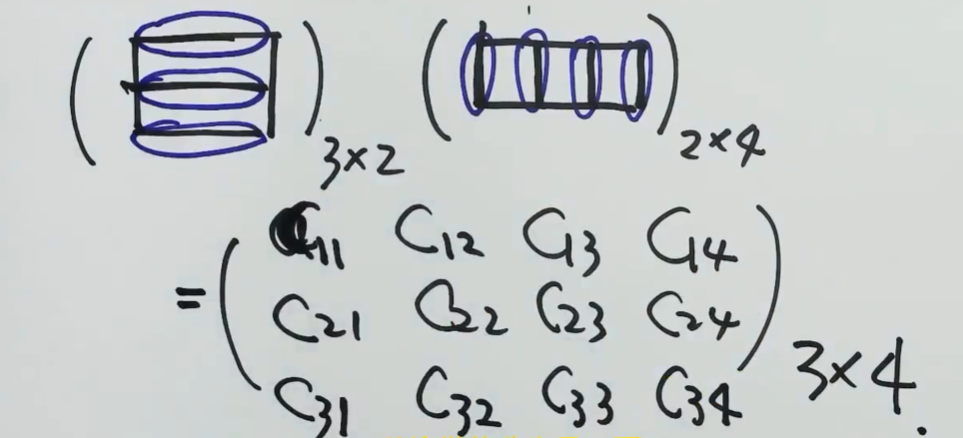 ( )3×2 ( )2×4
= ( C11 C12 C13 C14
C21 C22 C23 C24
C31 C32 C33 C34 )3×4.